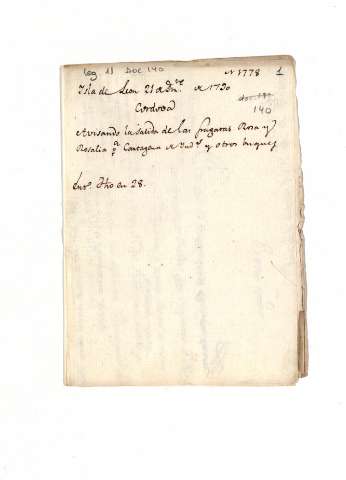 Leg 11 DOC 140
Nº 1778 1
Isla de Leon 21 de En.º de 1790
doc. 139
140
Cordova
Avisando la salida de las fragatas Rosa y
Rosalia p.ª Cartagena de Ind.s y otros buques
Fho en 28.